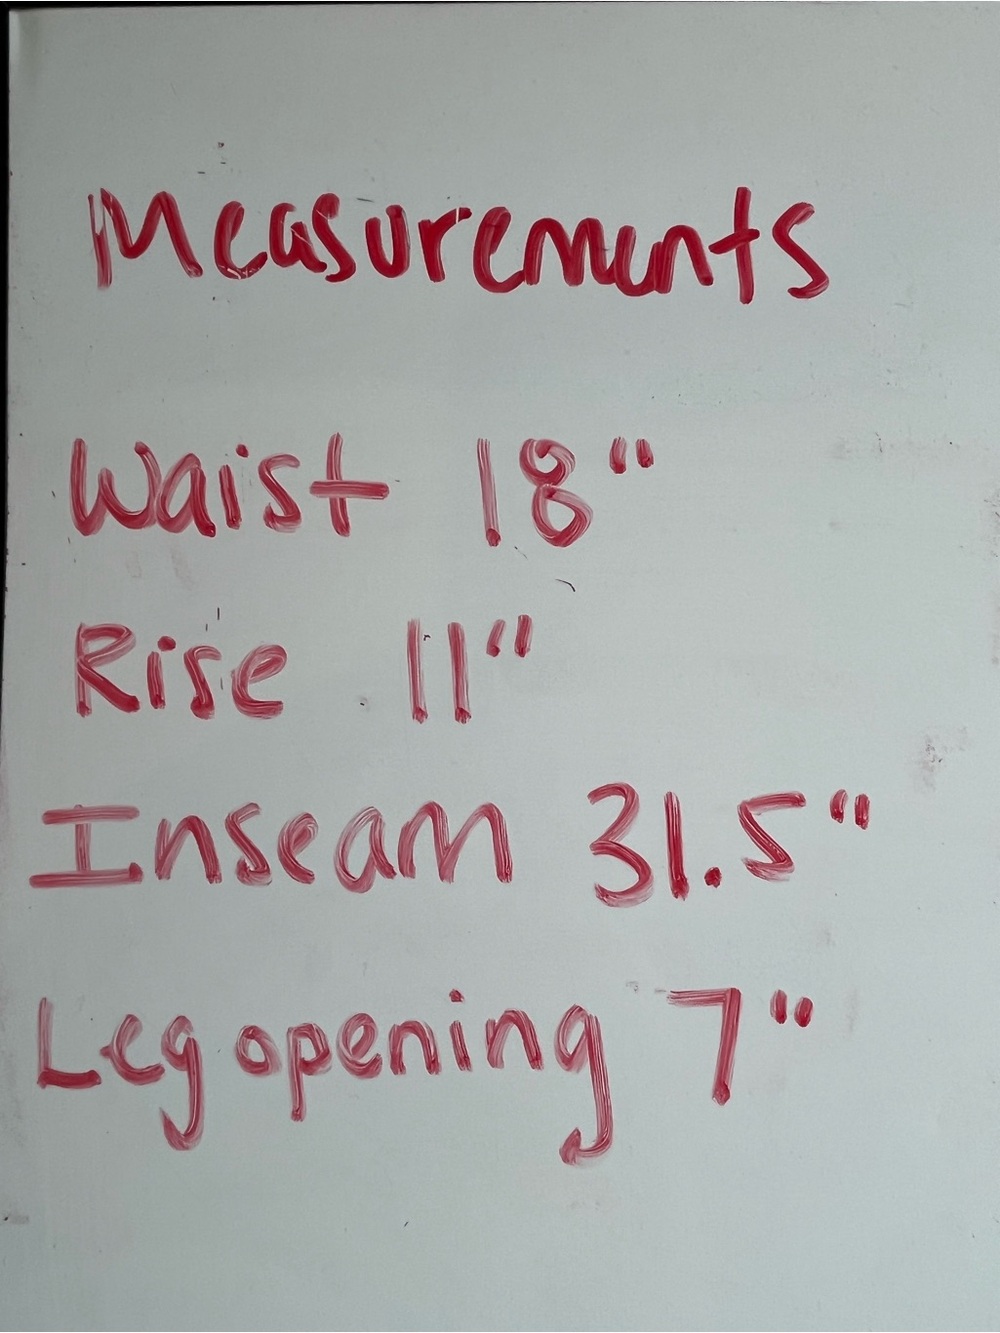 Measurements
Waist 18"
Rise 11"
Inseam 31.5"
Leg opening 7"